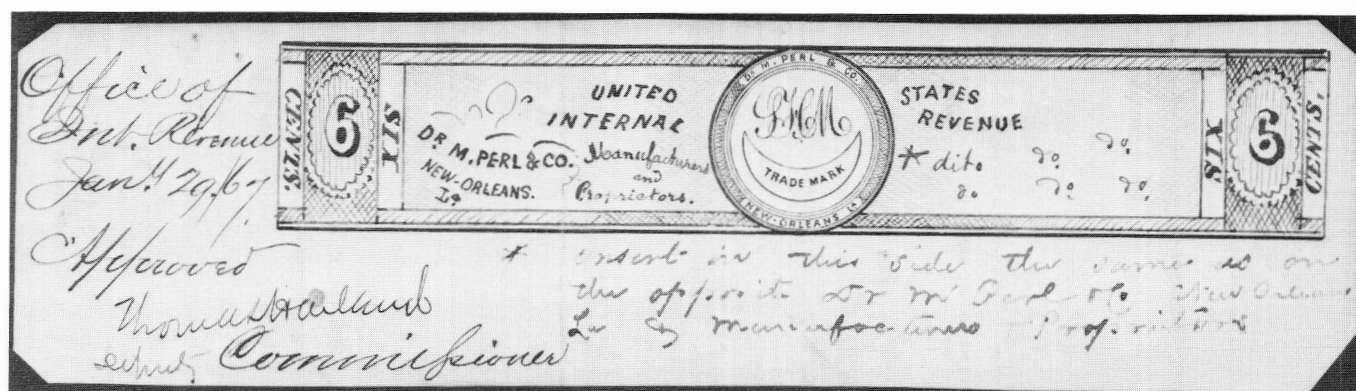 Office of
Int. Revenue
Jany 29, 67.
Approved
Deputy Commissioner
CENTS.
6
SIX
UNITED
INTERNAL
DR. M. PERL & CO.
NEW-ORLEANS.
La
Manufacturers
and
Proprietors.
DR. M. PERL & CO.
TRADE MARK
NEW-ORLEANS La
STATES
REVENUE
* dito do. do.
do. do. do.
SIX
6
CENTS.
* insert on this side the same as on
the opposit Dr M Perl & Co New Orleans
La & Manufacturers & Proprietors